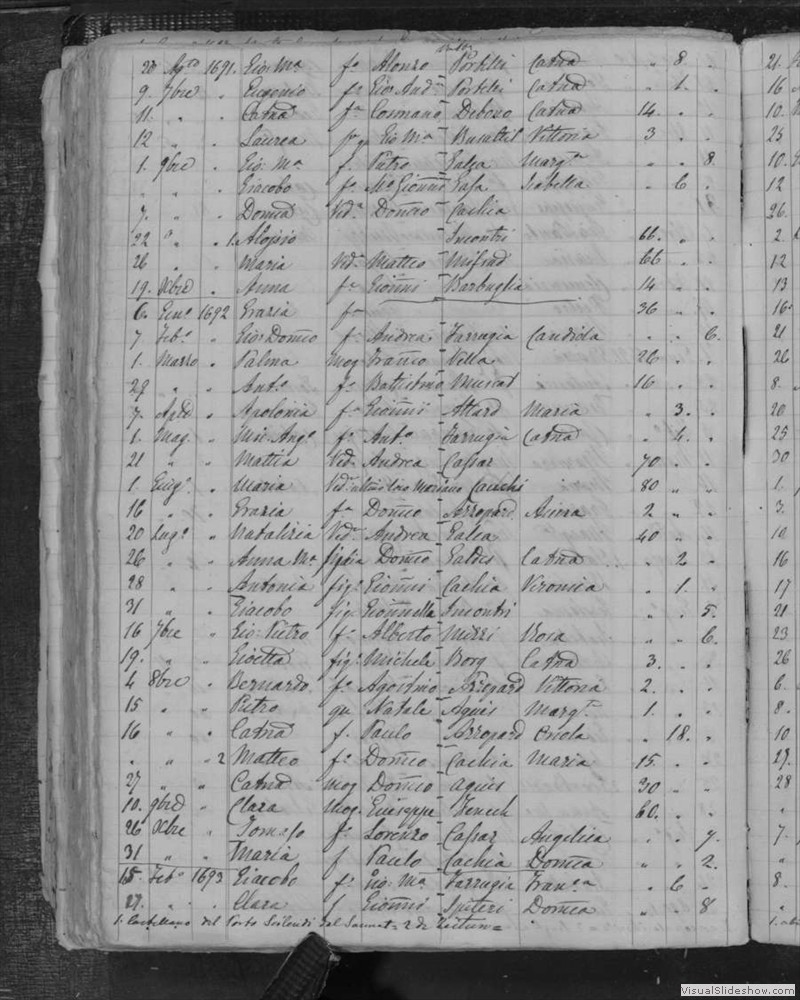 20 Ag.to 1691. Gio: M.a f.o Alonzo Portelli Catnã " 8 .
9. 7bre . Eugenio f.o Gio: And.a Portelli Catnã . 1. .
11. " . Catnã f.a Cosmano Debono Catnã 14. . .
12 " . Laurea Gio M.a Busuttil Vittoria 3 . .
1. 9bre . Gio. M.a f. Pietro Galea Marg.ta " . 8.
" " . Giacobo f.o Gionni Isabella . 6 .
7. " . Domcã Ved.a Domco Cachia
22 " . 1. Aloisio Incontri 66. . .
26 " . Maria Ved.a Matteo Mifsud 66 . .
19. Xbre . Anna f.a Gionni Barbuglia 14 . .
6. Gen.o 1692 Grazia f.a 36 . .
7 Feb.o . Gio: Domco f.o Andrea Farrugia Candiola . . 6.
1. Marzo . Palma mog. Franco Vella 26 . .
29 " . Ant.o f.o Battistino Muscat 16 . .
7. Aple . Apolonia f.a Gionni Attard Maria . 3. .
1. Mag. . Mic. Ang.o f.o Ant.o Farrugia Catnã . 4. .
21 " " Mattia Ved. Andrea Caspar 70 . .
1. Giug.o . Maria Ved.a Mariano Cauchi 80 " "
16 " . Grazia f.a Domco Azzopard. 2 " .
20 Lug.o " Natalizia Ved.a Andrea Galea 40 . .
26 " . Anna M.a figlia Domco Galdes Catnã . 2 .
28 " . Antonia fig.a Gionni Cachia Veronica . 1. .
31 " . Giacobo fig. Gionnella Incontri . . 5.
16 7bre . Gio: Pietro f.o Alberto Mizzi Rosa " " 6.
19. " " Gioetta fig.a Michele Borg Catnã 3. . .
4 8bre . Bernardo f.o Agostino Azzopard Vittoria 2. . .
15 " . Pietro qu Natale Agius Marg.ta 1. . .
16 " . Catnã f. Paulo Azzopard . 18. .
. " " 2 Matteo f.o Domco Cachia Maria 15. . .
27 " " Catnã mog Domco Agius 30 " .
10. 9bre " Clara Mog. Giuseppe Zenech 60. . .
26 Xbre " Tomaso f.o Lorenzo Caspar Angelica . . 7.
31 " " Maria f Paulo Cachia Domca " . 2.
15. Feb.o 1693 Giacobo f.o Gio: M.a Farrugia Fran.ca . 6 .
27. " . Clara f Gionni Spiteri Domca " . 8
1. Castellano del Porto 2 di Zeitun =
21.
16
10.
25
10.
12
26.
2.
12
13
16
21
26
8.
20
25
30
1.
3.
10
16
17
21
23
26
6.
8.
10
27.
28
7.
8.
VisualSlideshow.com